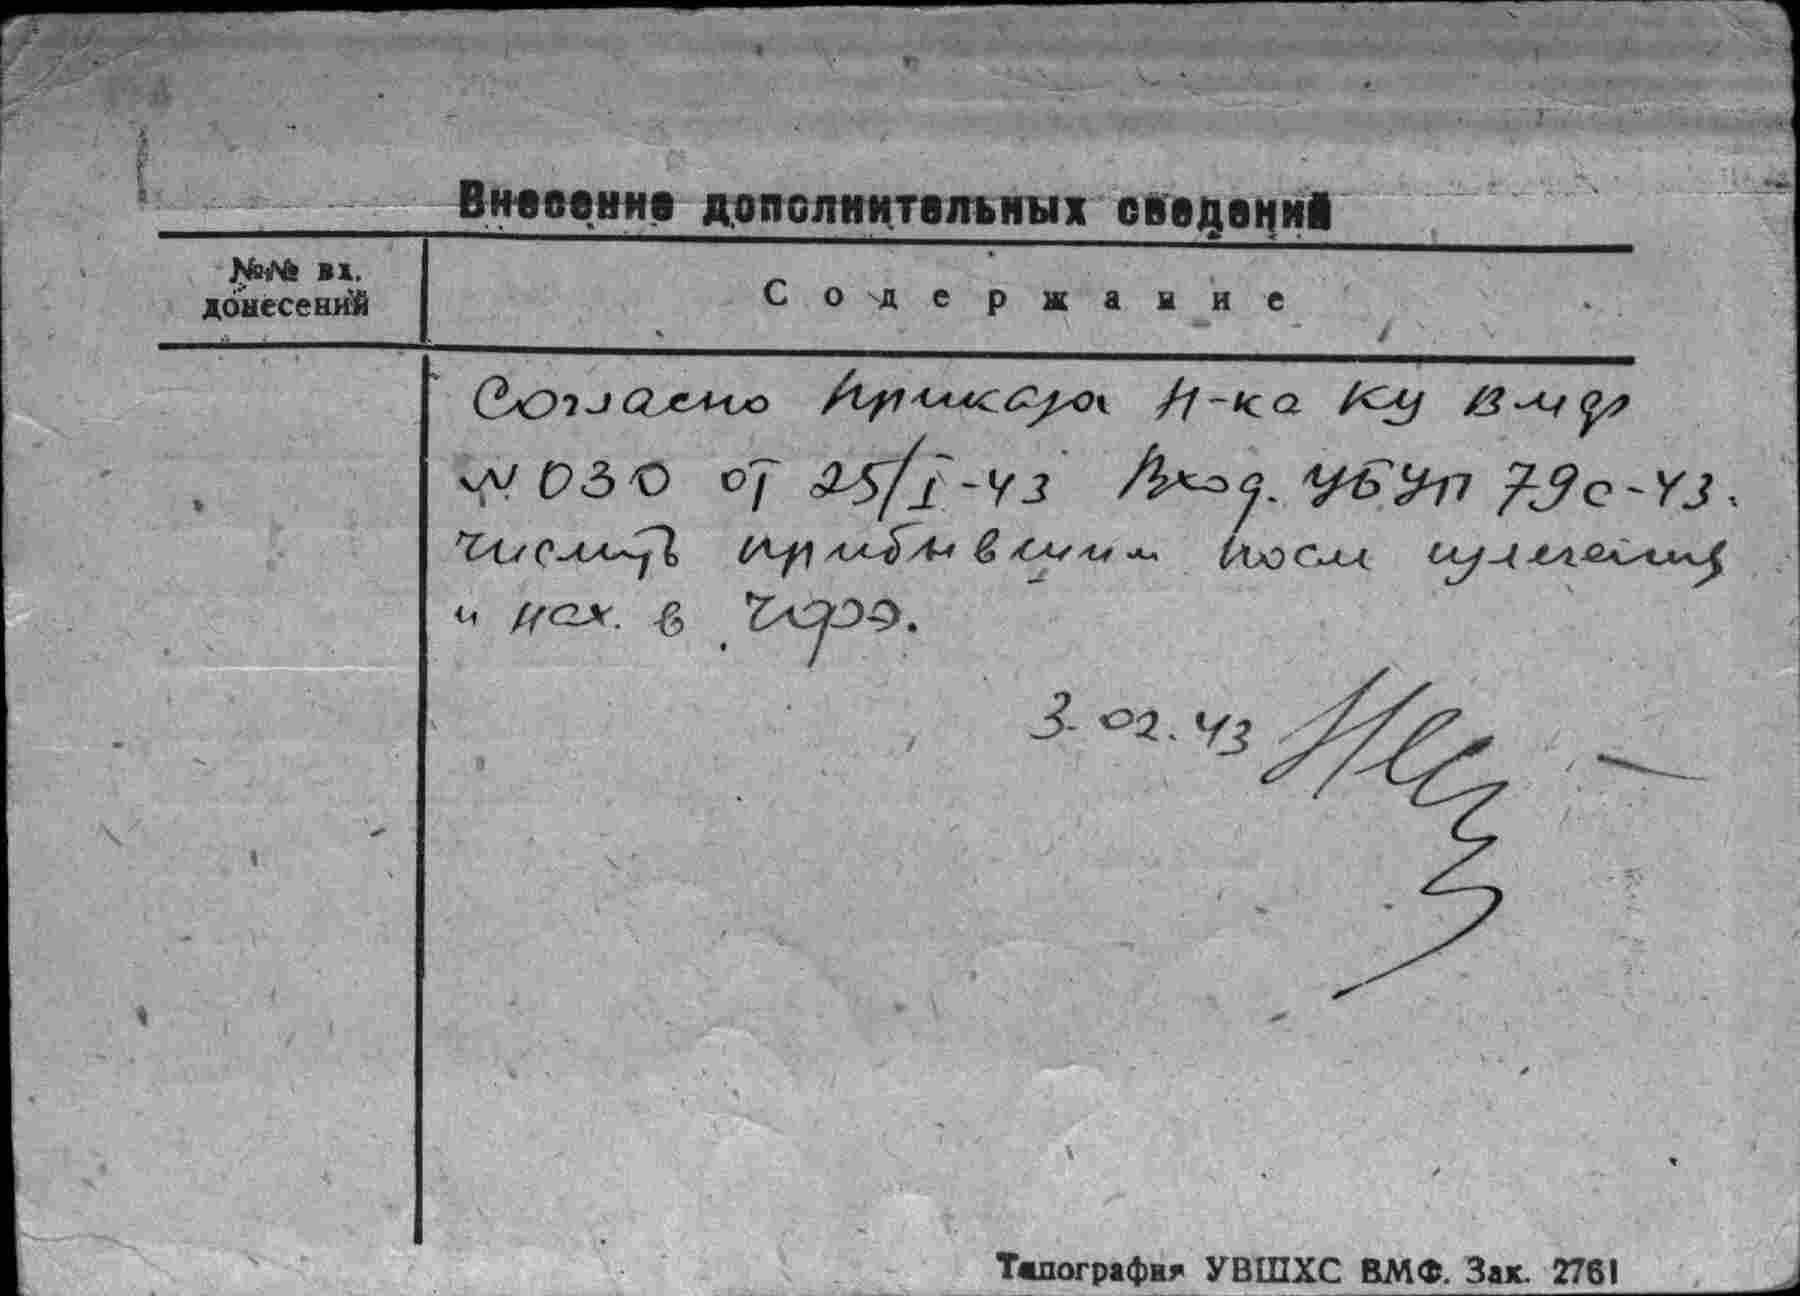 Внесение дополнительных сведений
№№ вх.
донесений
Содержание
Согласно приказа Н-ка КУ ВМФ
№ 030 от 25/I-43 Вход. УБУП 79с-43.
числить прибывшим после излечения
и нах. в ЧФЭ.
3.02.43
Типография УВШХС ВМФ. Зак. 2761